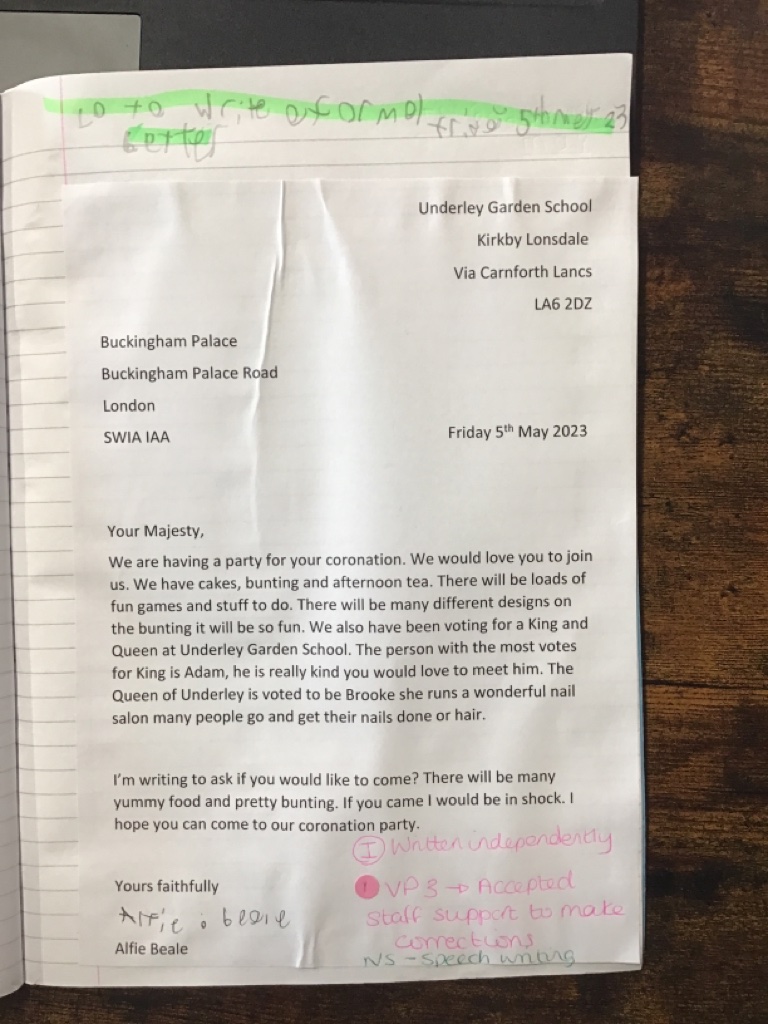 LO to write a formal
letter
5th may 23
Underley Garden School
Kirkby Lonsdale
Via Carnforth Lancs
LA6 2DZ
Buckingham Palace
Buckingham Palace Road
London
SWIA IAA
Friday 5th May 2023
Your Majesty,
We are having a party for your coronation. We would love you to join
us. We have cakes, bunting and afternoon tea. There will be loads of
fun games and stuff to do. There will be many different designs on
the bunting it will be so fun. We also have been voting for a King and
Queen at Underley Garden School. The person with the most votes
for King is Adam, he is really kind you would love to meet him. The
Queen of Underley is voted to be Brooke she runs a wonderful nail
salon many people go and get their nails done or hair.
I'm writing to ask if you would like to come? There will be many
yummy food and pretty bunting. If you came I would be in shock. I
hope you can come to our coronation party.
I Written independently
Yours faithfully
! VP3 → Accepted
staff support to make
corrections
Alfie beale
Alfie Beale
NS - Speech writing